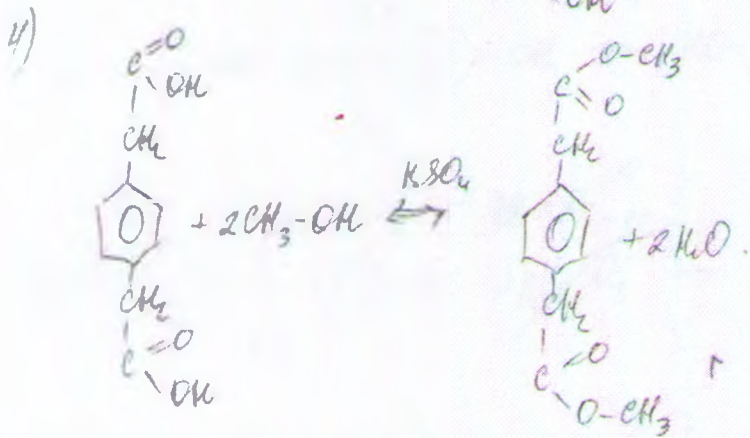 4)
C=O
OH
CH₂
+ 2CH₃-OH
H₂SO₄
⇌
CH₂
C=O
OH
O-CH₃
C=O
CH₂
+ 2H₂O.
CH₂
C=O
O-CH₃